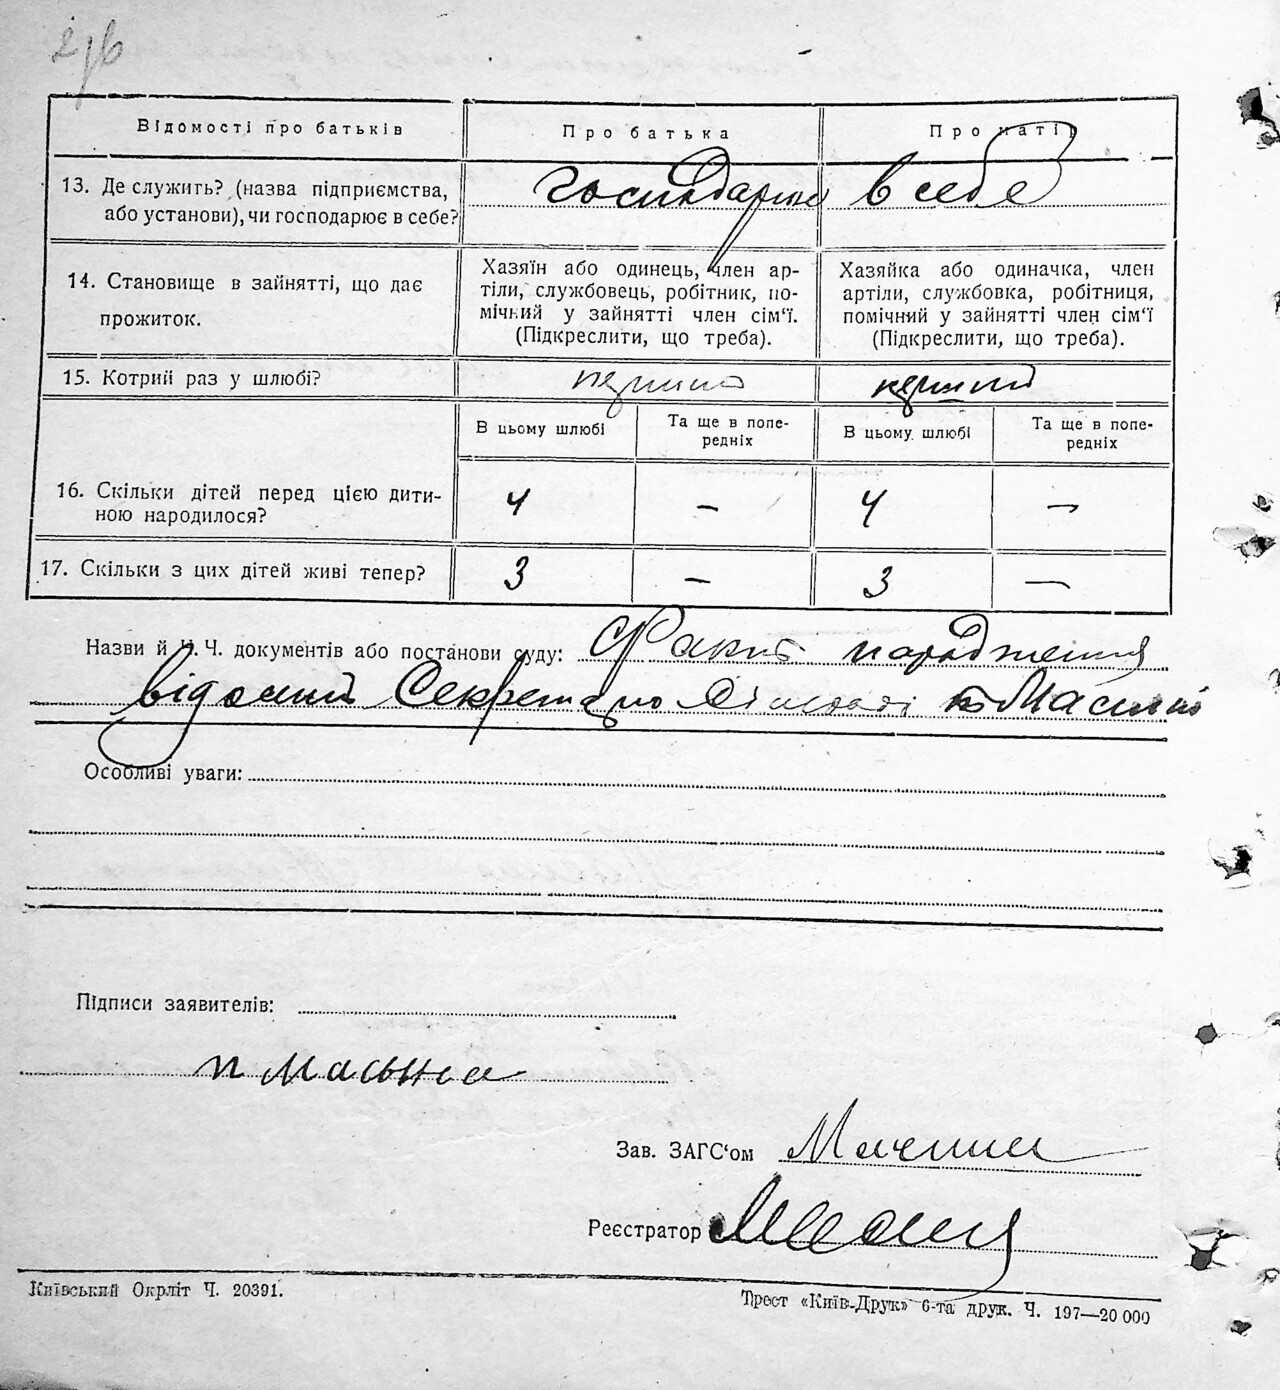 Відомості про батьків
Про батька
Про матір
13. Де служить? (назва підприємства,
або установи), чи господарює в себе?
господарює в себе
14. Становище в зайнятті, що дає
прожиток.
Хазяїн або одинець, член ар-
тіли, службовець, робітник, по-
мічний у зайнятті член сім‘ї.
(Підкреслити, що треба).
Хазяйка або одиначка, член
артіли, службовка, робітниця,
помічний у зайнятті член сім‘ї
(Підкреслити, що треба).
15. Котрий раз у шлюбі?
перший
перший
В цьому шлюбі
Та ще в попе-
редніх
В цьому шлюбі
Та ще в попе-
редніх
16. Скільки дітей перед цією дити-
ною народилося?
4
–
4
–
17. Скільки з цих дітей живі тепер?
3
–
3
–
Назви й Ч. Ч. документів або постанови суду: Факт народження
відомий Секретарю
Особливі уваги:
Підписи заявителів:
Зав. ЗАГС‘ом
Реєстратор
Київський Окрліт Ч. 20391.
Трест «Київ-Друк» 6-та друк. Ч. 197—20 000